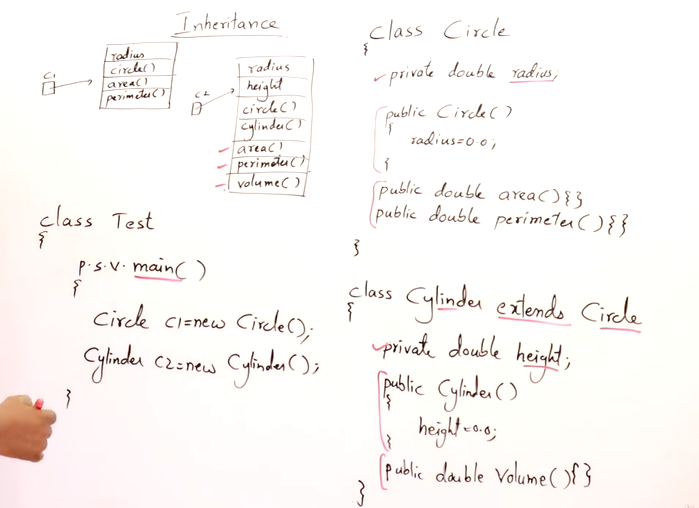 Inheritance
C1
radius
circle()
area()
perimeter()
C2
radius
height
circle()
cylinder()
area()
perimeter()
volume()
class Test
{
p.s.v. main()
{
Circle C1=new Circle();
Cylinder C2=new Cylinder();
}
class Circle
{
private double radius;
public Circle()
{
radius=0.0;
}
public double area(){}
public double perimeter(){}
}
class Cylinder extends Circle
{
private double height;
public Cylinder()
{
height=0.0;
}
public double Volume(){}
}